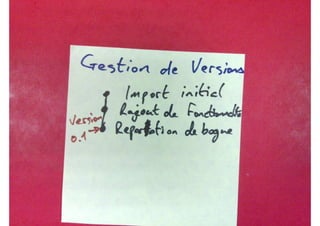 Gestion de Versions
Import initial
Rajout de Fonctionnalité
Version
0.1
Reparation de bogue